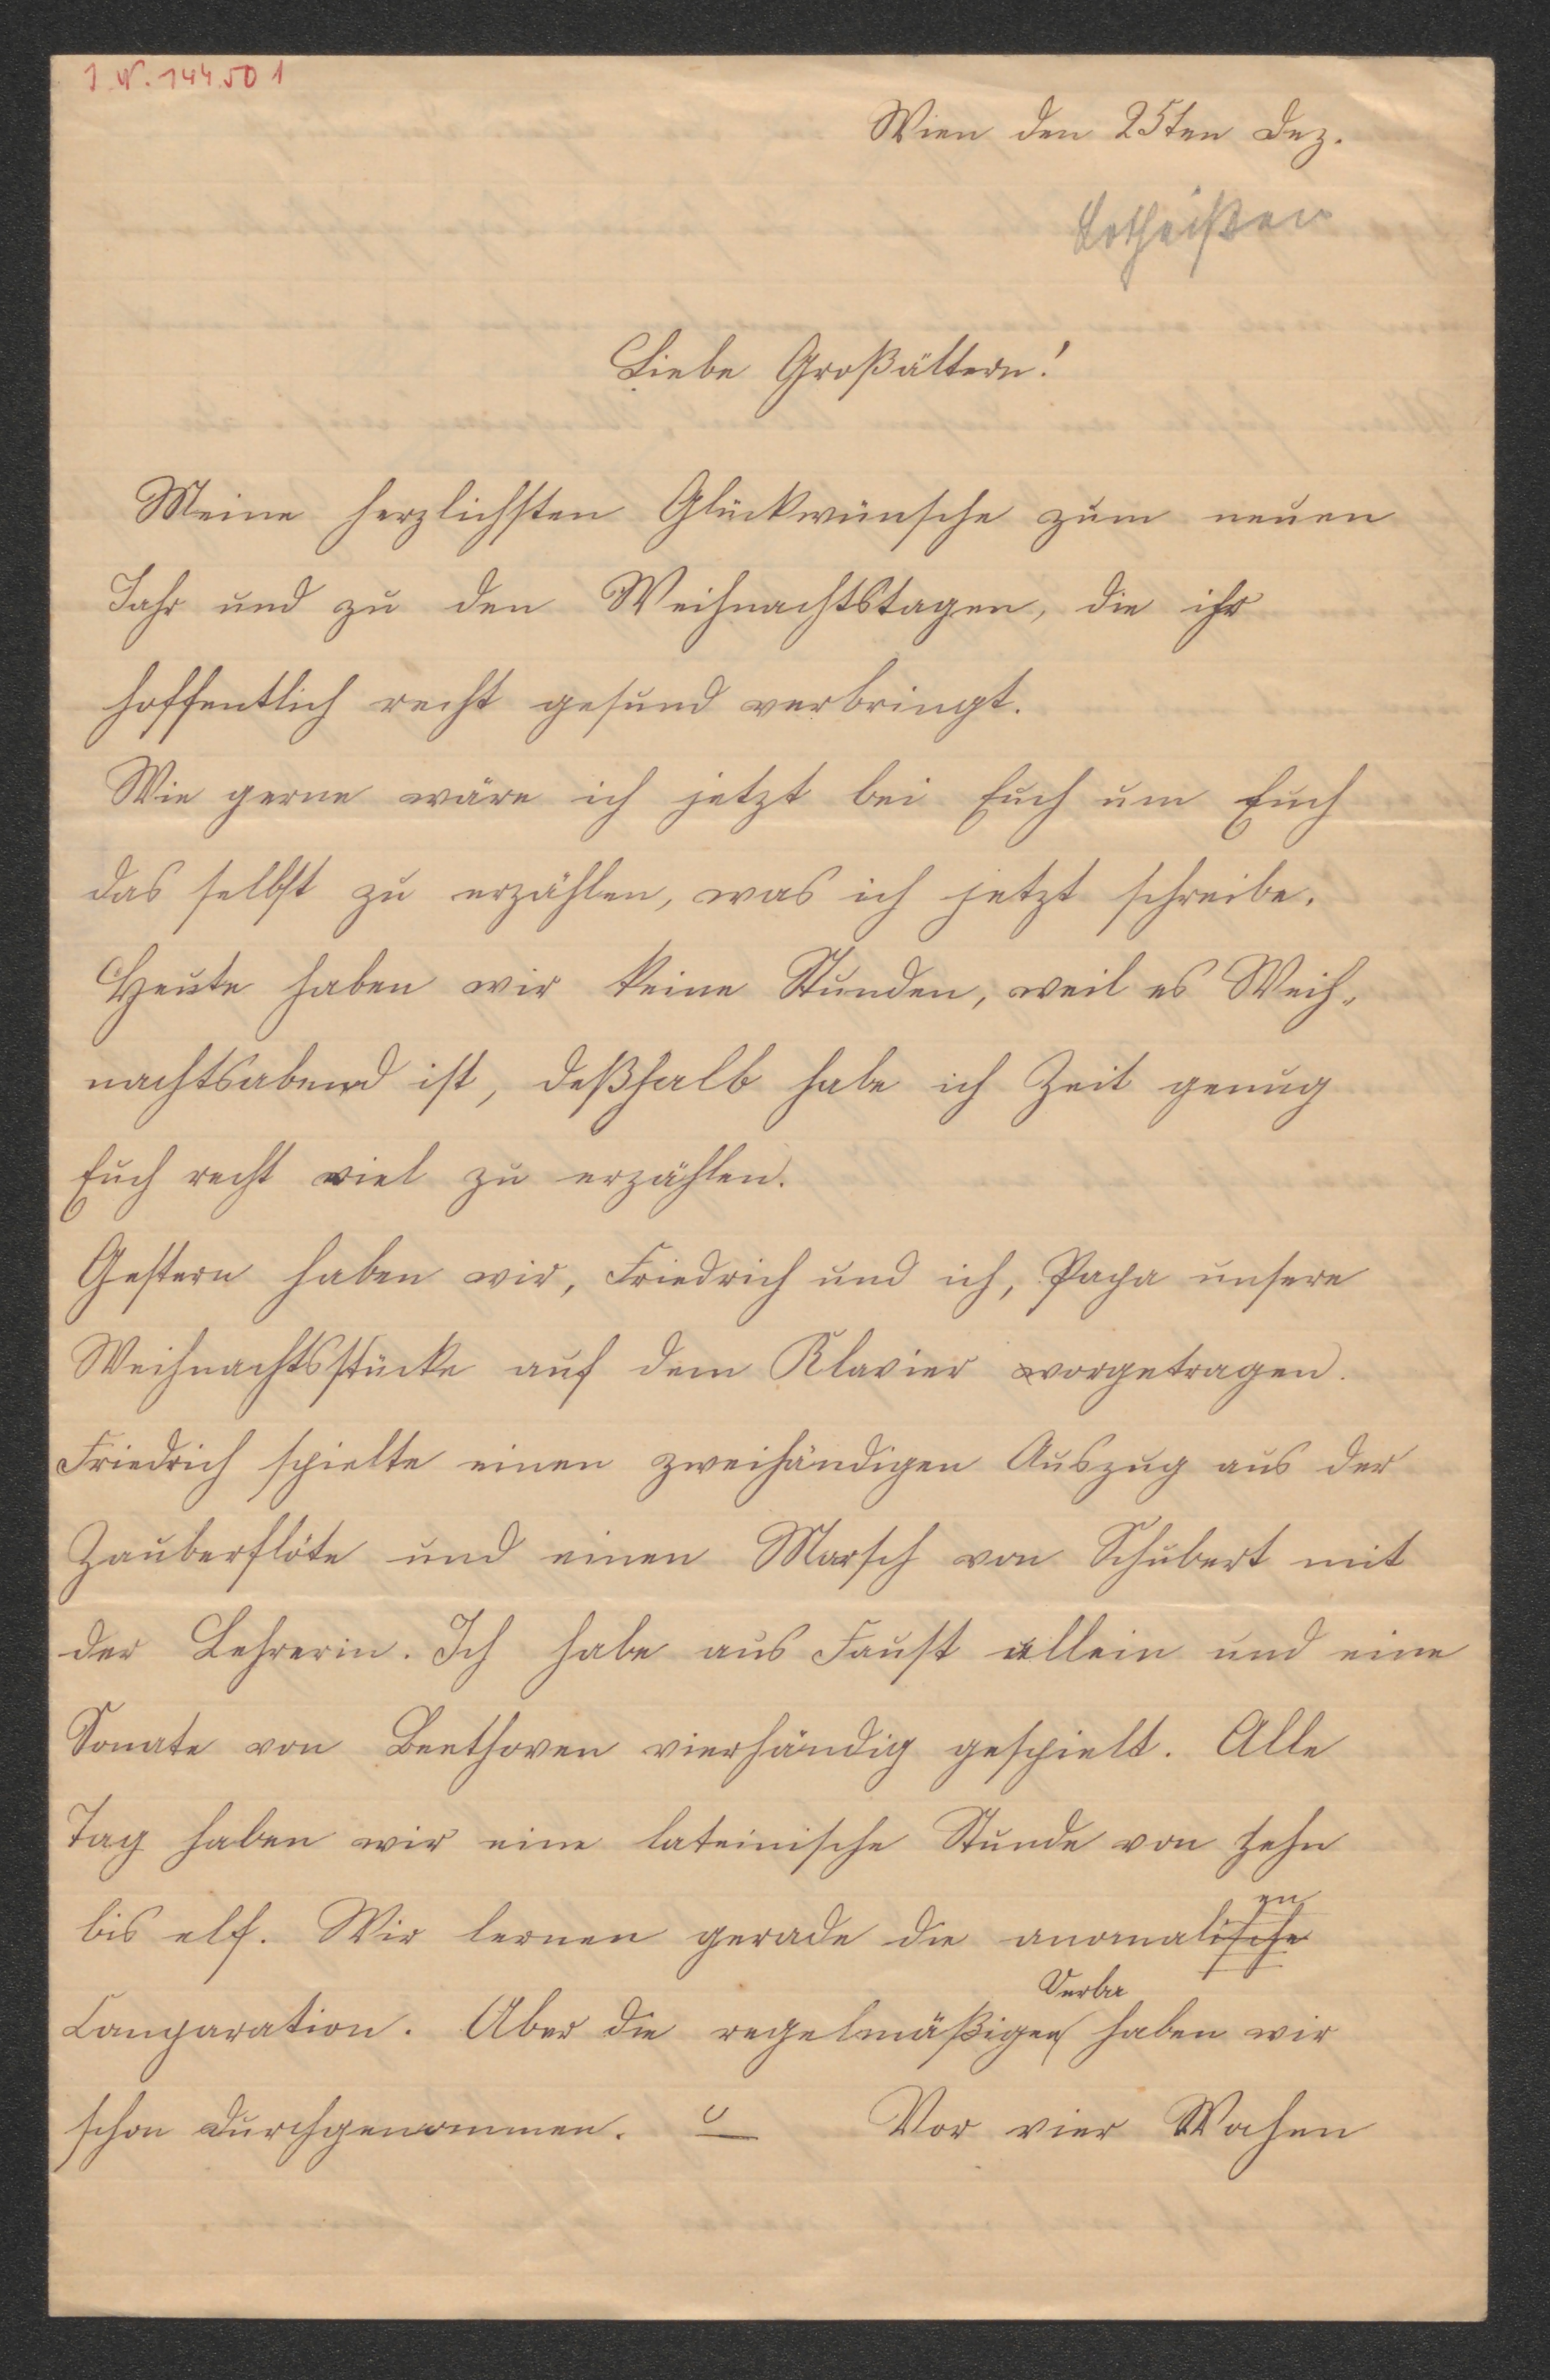 I N. 144501
Wien den 25ten Dez.
Lotheißen
Liebe Großältern!
Meine herzlichsten Glückwünsche zum neuen
Jahr und zu den Weihnachtstagen, die ihr
hoffentlich recht gesund verbringt.
Wie gerne wäre ich jetzt bei Euch um Euch
das selbst zu erzählen, was ich jetzt schreibe.
Heute haben wir keine Stunden, weil es Weih-
nachtsabend ist, deßhalb habe ich Zeit genug
Euch recht viel zu erzählen.
Gestern haben wir, Friedrich und ich, Papa unsere
Weihnachtsstücke auf dem Klavier vorgetragen.
Friedrich spielte einen zweihändigen Auszug aus der
Zauberflöte und einen Marsch von Schubert mit
der Lehrerin. Ich habe aus Faust allein und eine
Sonate von Beethoven vierhändig gespielt. Alle
Tag haben wir eine lateinische Stunde von zehn
en
bis elf. Wir lernen gerade die anomalische
Verba
Comparation. Aber die regelmäßigen haben wir
schon durchgenommen. Vor vier Wochen